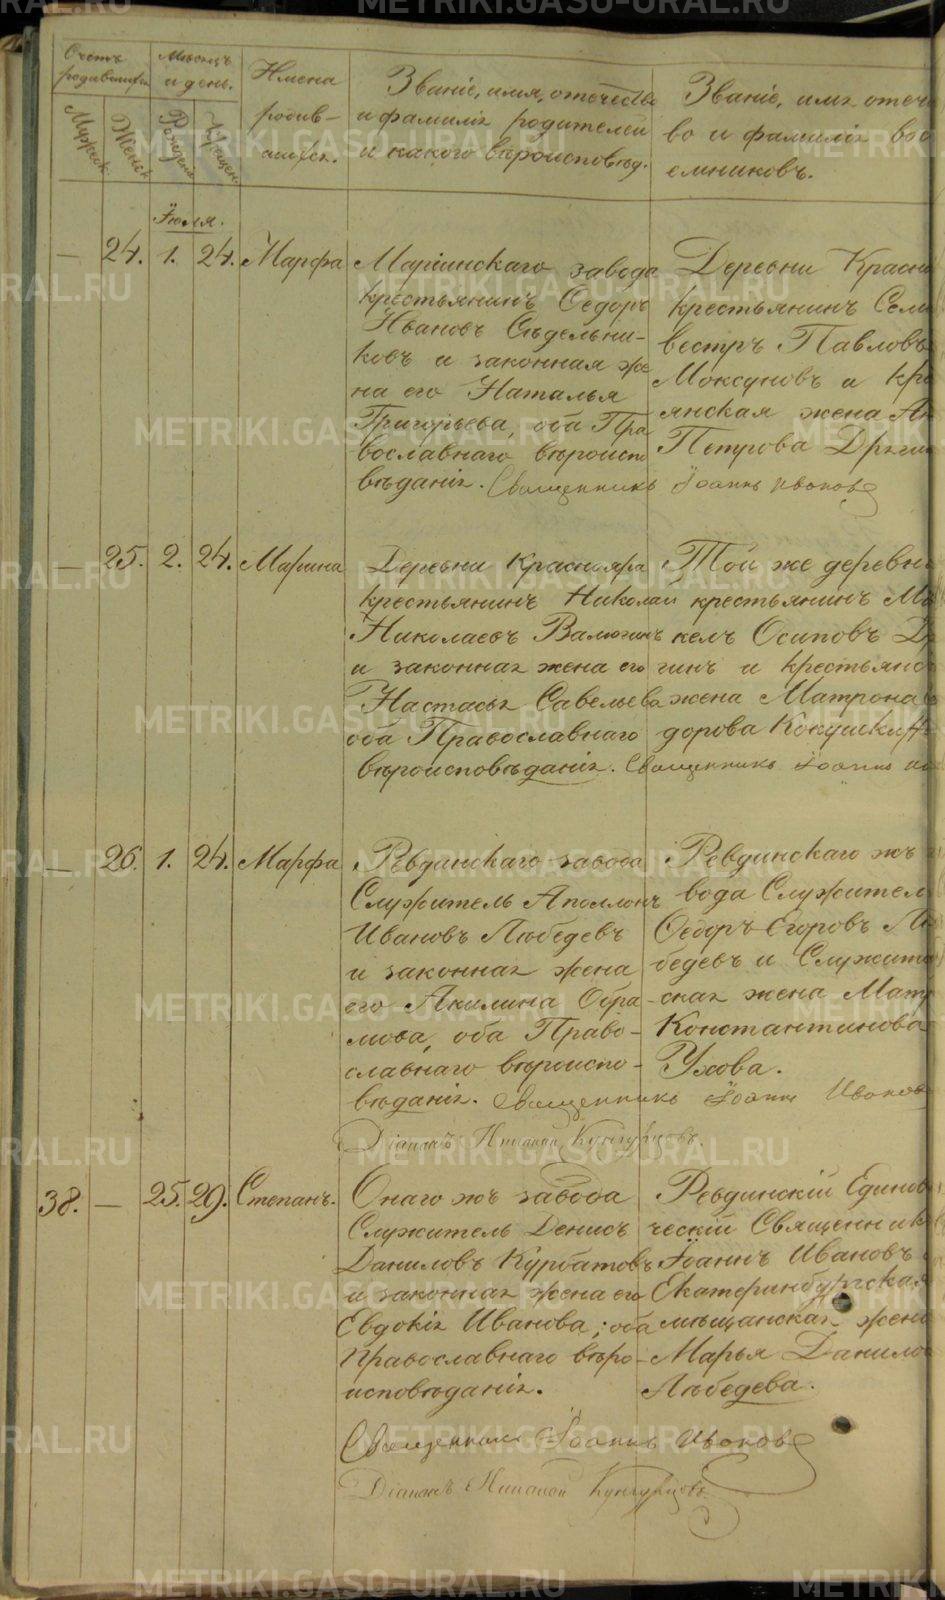 Счетъ родившихся
Мѣсяцъ и день.
Имена родив-шихся.
Званіе, имя, отечество
и фамилія родителей
и какого вѣроисповѣд.
Званіе, имя отече
во и фамилія вос
емниковъ.
Мужеск.
Женск.
Рожден.
Крещен.
Іюля.
— 24. 1. 24. Марфа
Маріинскаго завода
крестьянинъ Ѳедоръ
Ивановъ Сѣдельни-
ковъ и законная же
на его Наталья
Григорьева, оба Пра
вославнаго вѣроиспо
вѣданія. Священникъ Іоаннъ Ивановъ
Деревни Красно
крестьянинъ Сели
вестръ Павловъ
Моксуновъ и кре
янская жена Ан
Петрова Дрягин
— 25. 2. 24. Марина
Деревни Краснояра
крестьянинъ Николай
Николаевъ Валюгинъ
и законная жена его
Настасья Савельева
оба Православнаго
вѣроисповѣданія. Священникъ Іоаннъ Ив
Той же деревни
крестьянинъ Ма
келъ Осиповъ Др
гинъ и крестьянс
жена Матрона Ѳ
дорова Кокушкин
— 26. 1. 24. Марфа
Ревдинскаго завода
Служитель Аполлонъ
Ивановъ Лѣбедевъ
и законная жена
его Акилина Обра-
мова, оба Право-
славнаго вѣроиспо-
вѣданія. Священникъ Іоаннъ Ивановъ
Діаконъ Николай Кунгурцовъ.
Ревдинскаго жъ з
вода Служител
Ѳедоръ Егоровъ Лѣ
бедевъ и Служите
ская жена Матр
Константинова
Ухова.
38. — 25. 29. Степанъ.
Онаго жъ завода
Служитель Денисъ
Даниловъ Курбатовъ
и законная жена его
Евдокія Иванова; оба
Православнаго вѣро-
исповѣданія.
Ревдинскій Единов
ческій Священник
Іоаннъ Ивановъ
Екатеринбургская
мѣщанская жена
Марья Данило
Лѣбедева.
Священникъ Іоаннъ Ивановъ
Діаконъ Николай Кунгурцовъ
METRIKI.GASO-URAL.RU